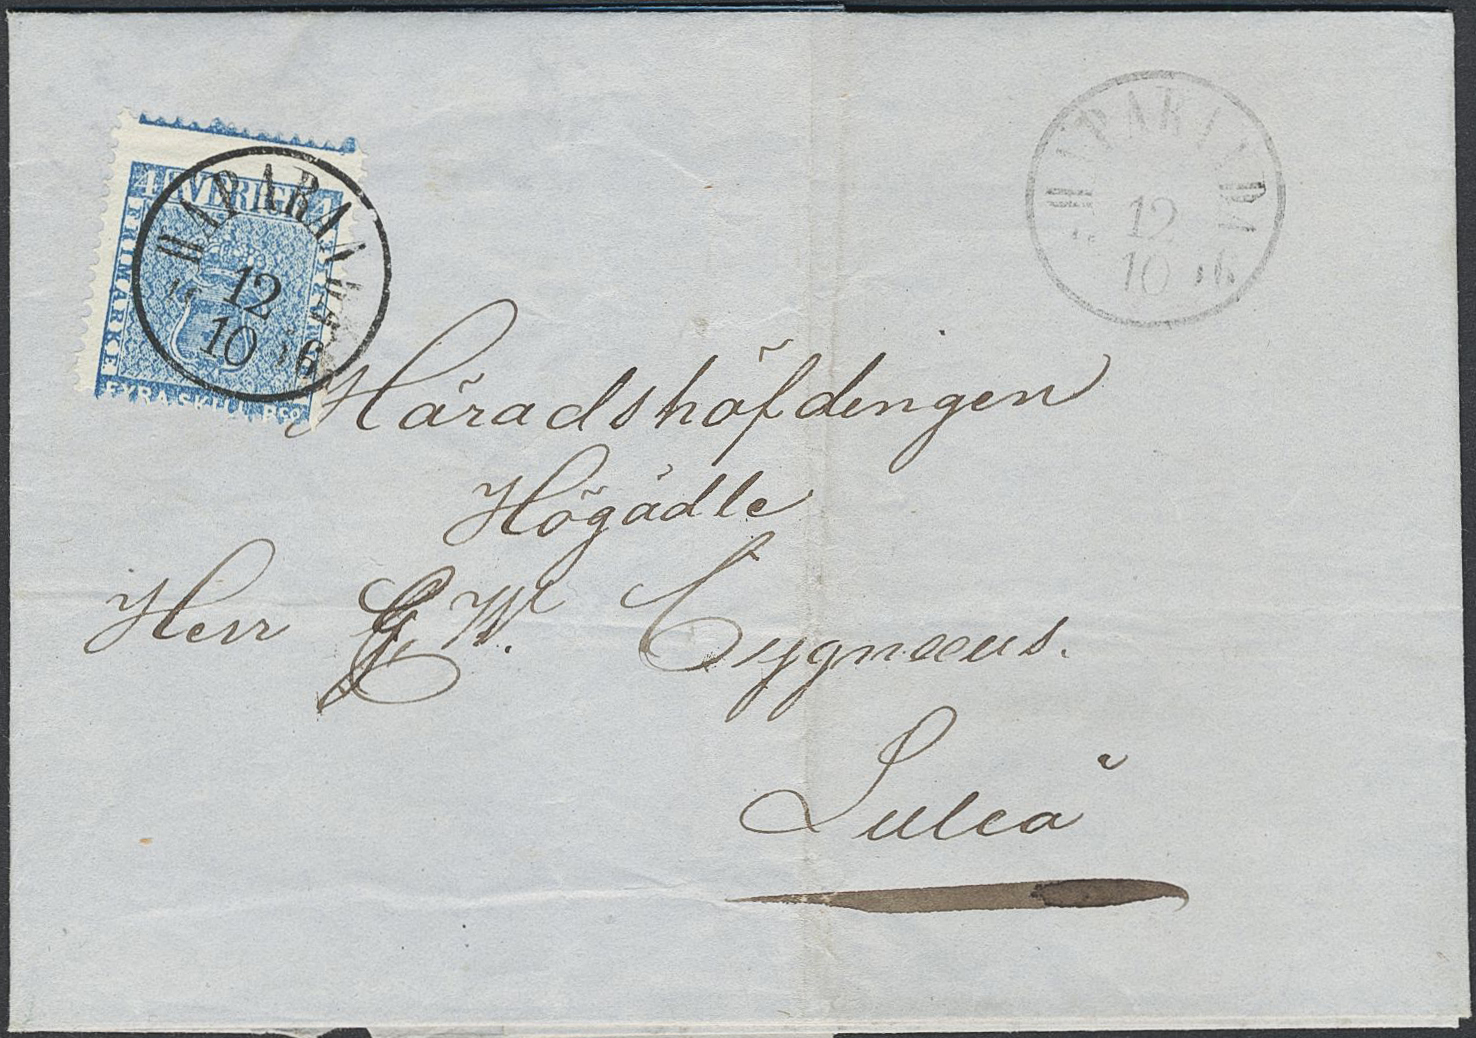 4 SVERIGE 4
FRIMÄRKE
FYRA SKILL. Bco
HAPARANDA
12
10
HAPARANDA
12
10
Häradshöfdingen
Högädle
Herr G. W. Cygnæus.
Luleå